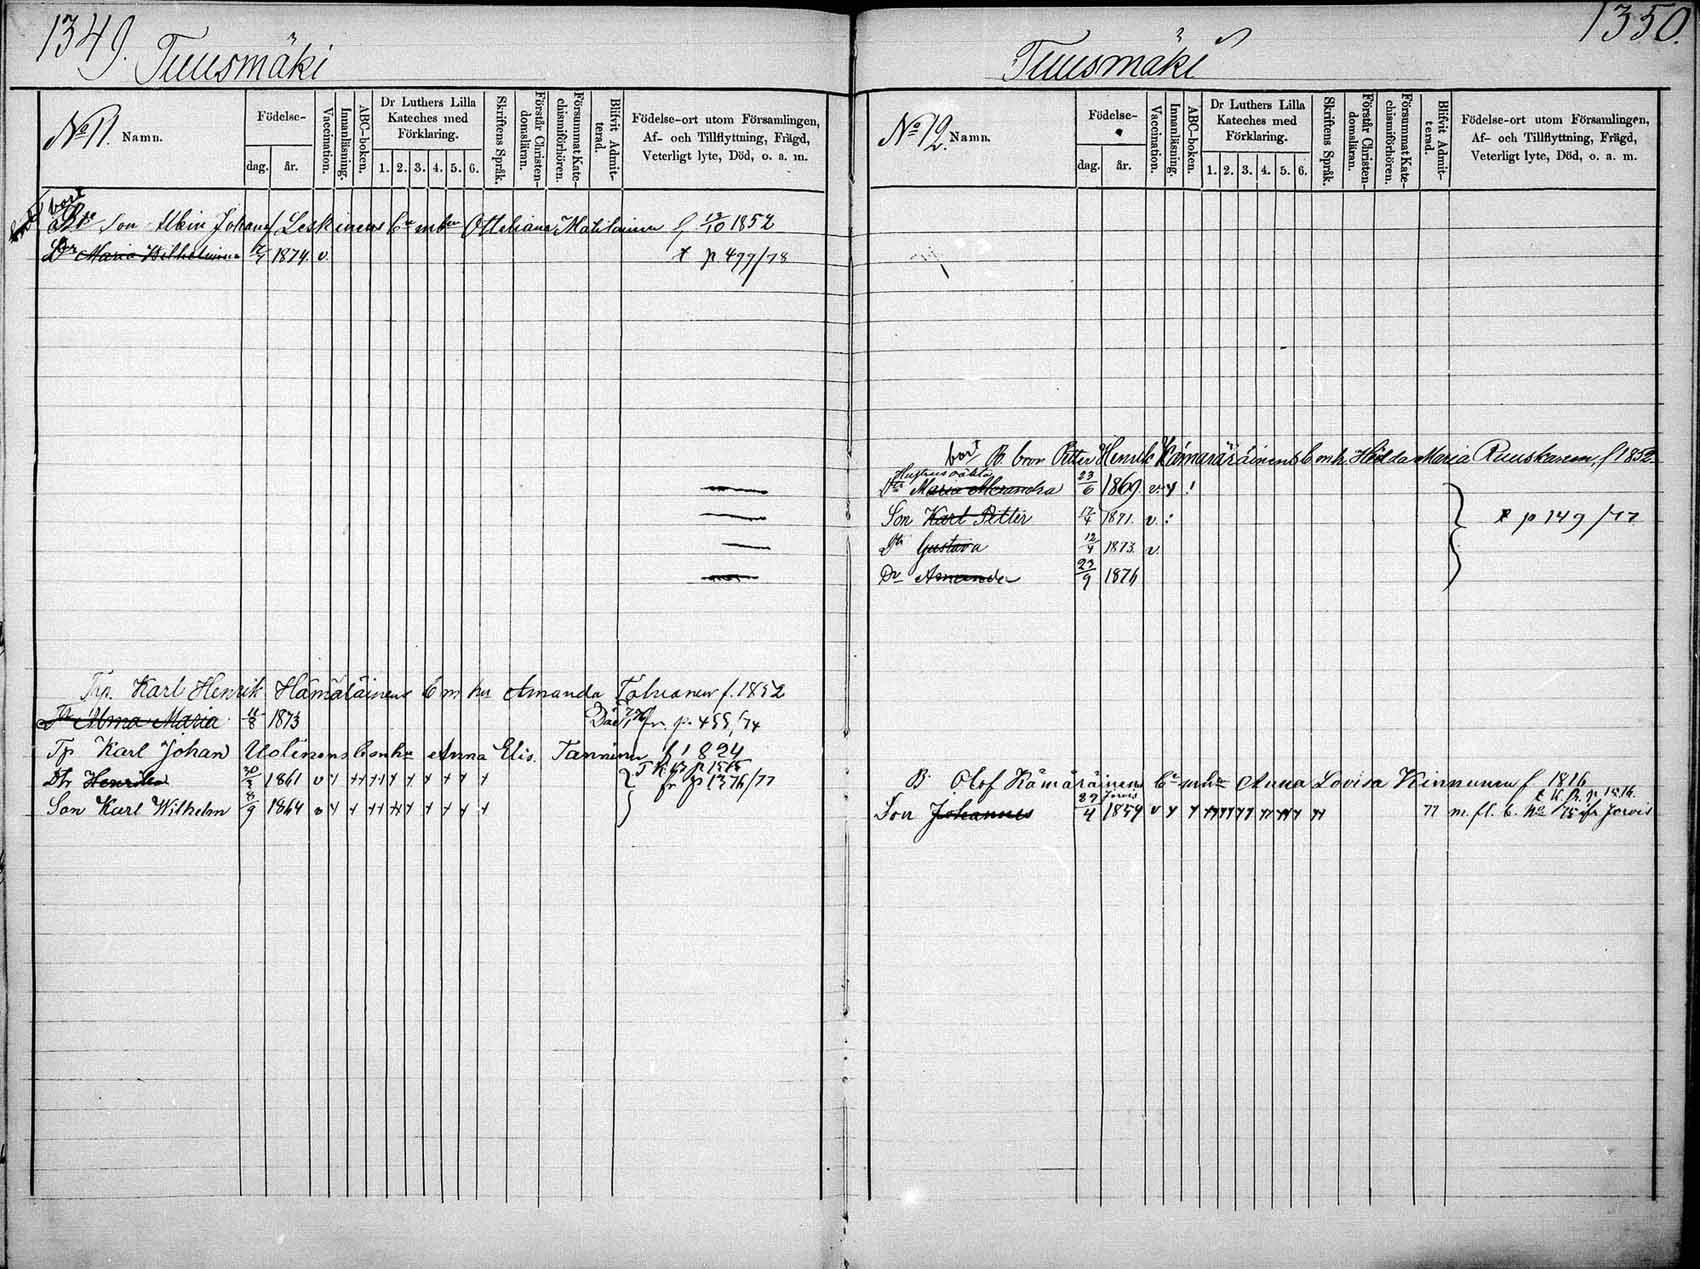 1349.
Tuusmäki
No 11. Namn.
Födelse-
dag. år.
Vaccination.
Innanläsning.
ABC-boken.
Dr Luthers Lilla
Kateches med
Förklaring.
1. 2. 3. 4. 5. 6.
Skriftens Språk.
Förstår Christen-
domsläran.
Försummat Kate-
chismiförhören.
Blifvit Admit-
terad.
Födelse-ort utom Församlingen,
Af- och Tillflyttning, Frägd,
Veterligt lyte, Död, o. a. m.
bort
Son Albin Johan Leskinens mhu Otteliana Matilainen f 12/10 1852
Dr Maria Wilhelmina 1874 v. p 477/78
Thp. Karl Henrik Hämäläinens mhu Amanda f. 1852
Dr Alma Maria 11/8 1873 fr. p. 455/74
Tp Karl Johan mhu Anna Elis. Tanninen f 1824
Dtr Henrika 1861 v fr p 1376/77
Son Karl Wilhelm 8/9 1864 v
1350.
Tuusmäki
No 12. Namn.
Födelse-
dag. år.
Vaccination.
Innanläsning.
ABC-boken.
Dr Luthers Lilla
Kateches med
Förklaring.
1. 2. 3. 4. 5. 6.
Skriftens Språk.
Förstår Christen-
domsläran.
Försummat Kate-
chismiförhören.
Blifvit Admit-
terad.
Födelse-ort utom Församlingen,
Af- och Tillflyttning, Frägd,
Veterligt lyte, Död, o. a. m.
bort B. bror Petter Henrik Hämäräinens mh Hilda Maria Ruuskanen f 1852
Dtr Maria Alexandra 23/6 1869. v.
Son Karl Petter 17/4 1871. v. p 149/77
Dtr Gustava 12/4 1873. v.
Dr Amanda 23/9 1876
B Olof Hämäräinens mhu Anna Lovisa Kinnunen f 1816
Son Johannes 27/4 1859 v 77 m. fl. b. No 75 fr Jorois